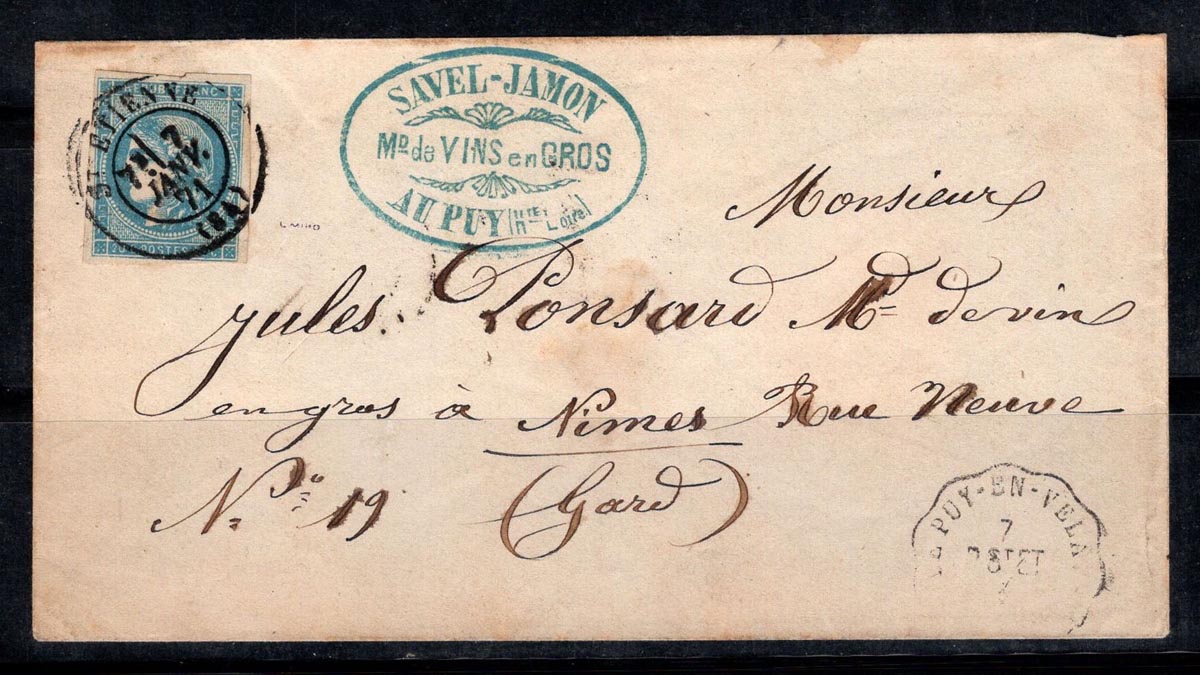 RÉPUB. FRANC
ST ETIENNE
7
JANV.
71
(84)
20 POSTES 20
SAVEL-JAMON
Md. de VINS en GROS
AU PUY (Hte. Loire)
Monsieur
Jules Ponsard Md. de vin
en gros à Nimes Rue Neuve
No. 19 (Gard)
PUY-EN-VELA
7
ST ET